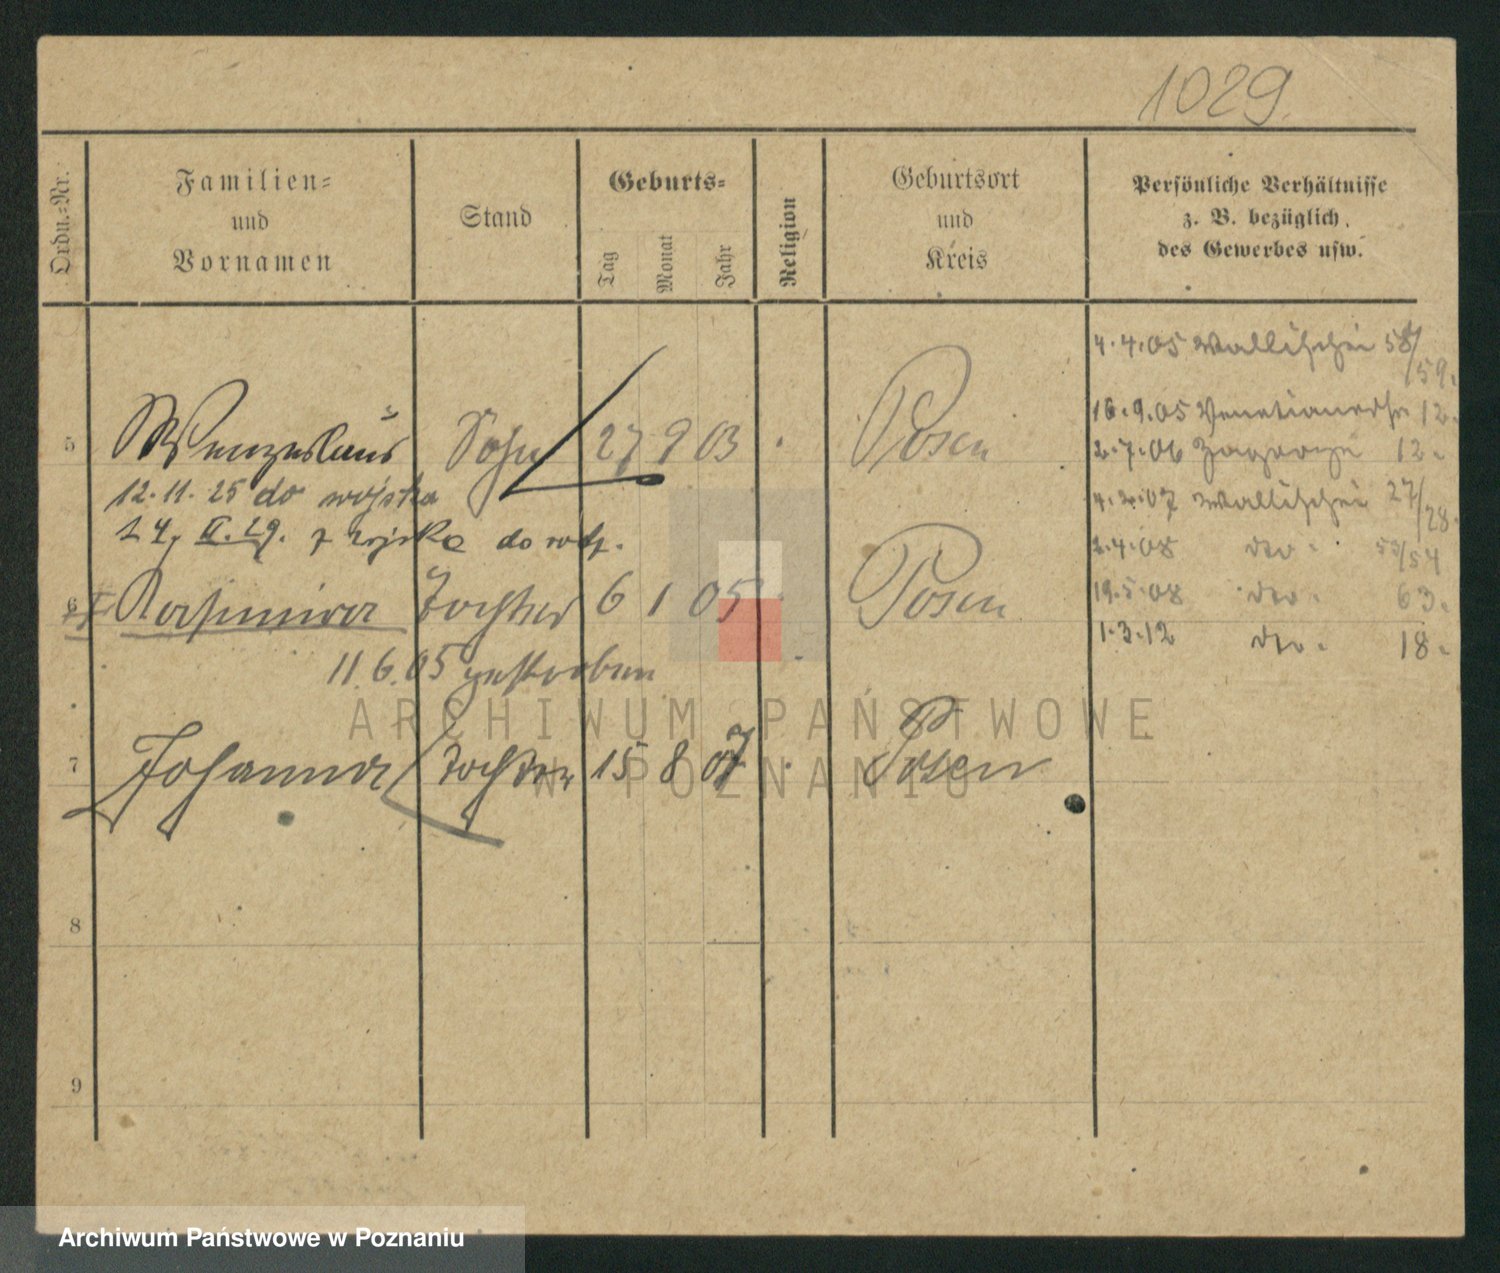 1029.
Ordn.-Nr.
Familien-
und
Vornamen
Stand
Geburts-
Tag
Monat
Jahr
Religion
Geburtsort
und
Kreis
Persönliche Verhältnisse
z. B. bezüglich
des Gewerbes usw.
4.4.05 Wallischei 58/59.
5 Wenzeslaus Sohn 27 9 03 Posen
16.9.05 Venetianerstr 12.
2.7.06 Zagorze 12.
12.11.25 do wojska
4.4.07 Wallischei 27/28.
24. II. 29. z wojska do rodz.
2.4.08 dto. 53/54
6 Kasimira Tochter 6 1 05 Posen
19.5.08 dto. 63.
1.3.12 dto. 18.
11.6.05 gestorben
ARCHIWUM PAŃSTWOWE
W POZNANIU
7 Johanna Tochter 15 8 07 Posen
8
9
Archiwum Państwowe w Poznaniu